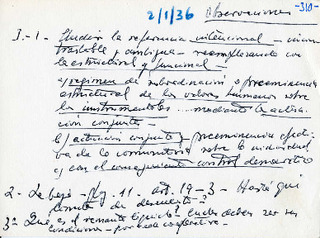 2/1/36 Observaciones -310-
I - 1 - Eludir la referencia intencional -
trastable y ambigua - reemplazando con
lo estructural y funcional -
a) régimen de subordinación o preeminencia
estructural de los valores humanos sobre
los instrumentales ... mediante la actua
ción conjunta -
b) actuación conjunta y preeminencia efecti
va de lo comunitario sobre lo individual
y con el consiguiente control democrático
2 - De bajo - Pág. 11 - art. 19 - 3 - Hasta qué
límite de descuento - ?
3º Qué es el remanente líquido? Cuáles deben ser sus
condiciones - por cada cooperativa -